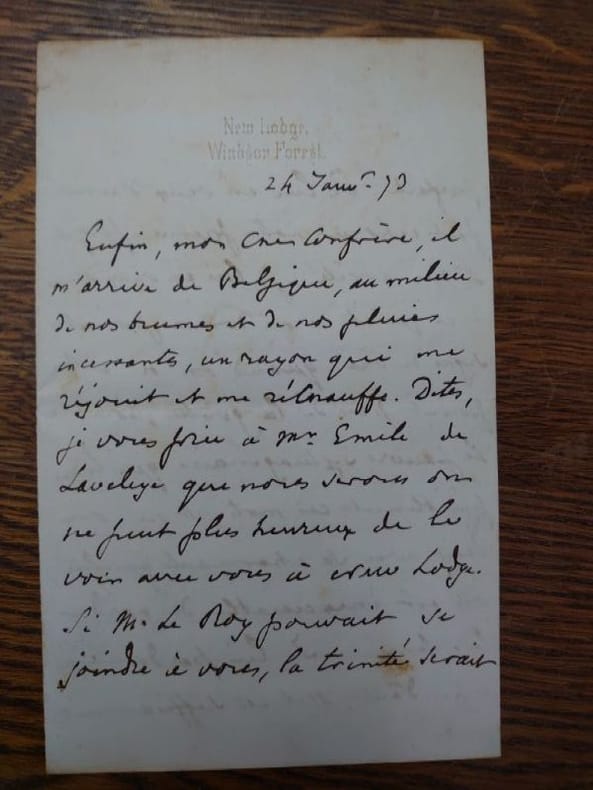 New Lodge.
Windsor Forest.
24 Janvr 73
Enfin, mon cher Confrère, il
m'arrive de Belgique, au milieu
de nos brumes et de nos pluies
incessantes, un rayon qui me
réjouit et me réchauffe. Dites,
je vous prie à Mr Emile de
Laveleye que nous serons on
ne peut plus heureux de le
voir avec vous à New Lodge.
Si M. Le Roy pouvait se
joindre à vous, la trinité serait